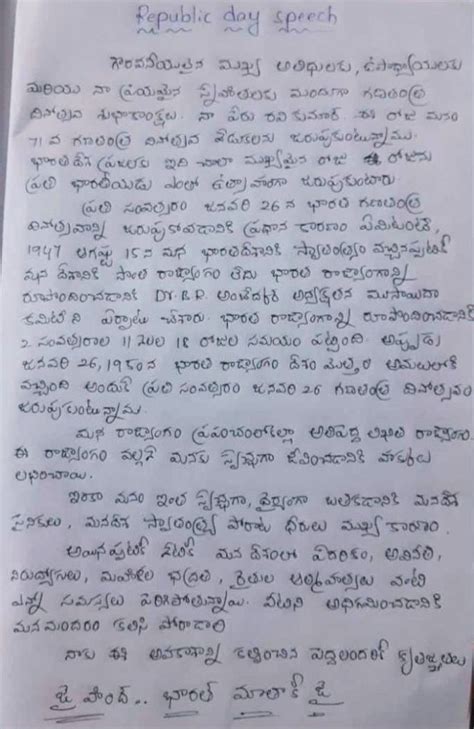 Republic day speech
గౌరవనీయులైన ముఖ్య అతిథులకు, ఉపాధ్యాయులకు
మరియు నా ప్రియమైన స్నేహితులకు ముందుగా గణతంత్ర
దినోత్సవ శుభాకాంక్షలు. నా పేరు రవి కుమార్. ఈ రోజు మనం
71 వ గణతంత్ర దినోత్సవ వేడుకలను జరుపుకుంటున్నాము.
భారతదేశ ప్రజలకు ఇది చాలా ముఖ్యమైన రోజు ఈ రోజును
ప్రతి భారతీయుడు ఎంతో ఉత్సాహంగా జరుపుకుంటారు.
ప్రతి సంవత్సరం జనవరి 26 న భారత గణతంత్ర
దినోత్సవాన్ని జరుపుకోవడానికి ప్రధాన కారణం ఏమిటంటే,
1947 ఆగష్టు 15న మన భారతదేశానికి స్వాతంత్ర్యం వచ్చినప్పటికీ
మన దేశానికి సొంత రాజ్యాంగం లేదు భారత రాజ్యాంగాన్ని
రూపొందించడానికి Dr. B.R. అంబేద్కర్ అధ్యక్షతన ముసాయిదా
కమిటీ ని ఏర్పాటు చేశారు. భారత రాజ్యాంగాన్ని రూపొందించడానికి
2 సంవత్సరాల 11 నెలల 18 రోజుల సమయం పట్టింది. అప్పుడు
జనవరి 26, 1950 న భారత రాజ్యాంగం దేశం మొత్తం అమలులోకి
వచ్చింది అందుకే ప్రతి సంవత్సరం జనవరి 26 గణతంత్ర దినోత్సవం
జరుపుకుంటున్నాము.
మన రాజ్యాంగం ప్రపంచంలోకెల్లా అతిపెద్ద లిఖిత రాజ్యాంగం.
ఈ రాజ్యాంగం వల్లనే మనకు స్వేచ్ఛగా జీవించడానికి హక్కులు
లభించాయి.
ఇంకా మనం ఇంత స్వేచ్ఛగా, ధైర్యంగా బతకడానికి మనదేశ
సైనికులు, మనదేశ స్వాతంత్ర్య పోరాట ధీరులు ముఖ్య కారణం.
అయినప్పటికీ నేటికీ మన దేశంలో పేదరికం, అవినీతి,
నిరుద్యోగులు, మహిళల భద్రత, రైతుల ఆత్మహత్యలు వంటి
ఎన్నో సమస్యలు పెరిగిపోతున్నాయి. వీటిని అధిగమించడానికి
మనమందరం కలిసి పోరాడాలి
నాకు ఈ అవకాశాన్ని కల్పించిన పెద్దలందరికీ కృతజ్ఞతలు
జై హింద్.. భారత్ మాతాకీ జై